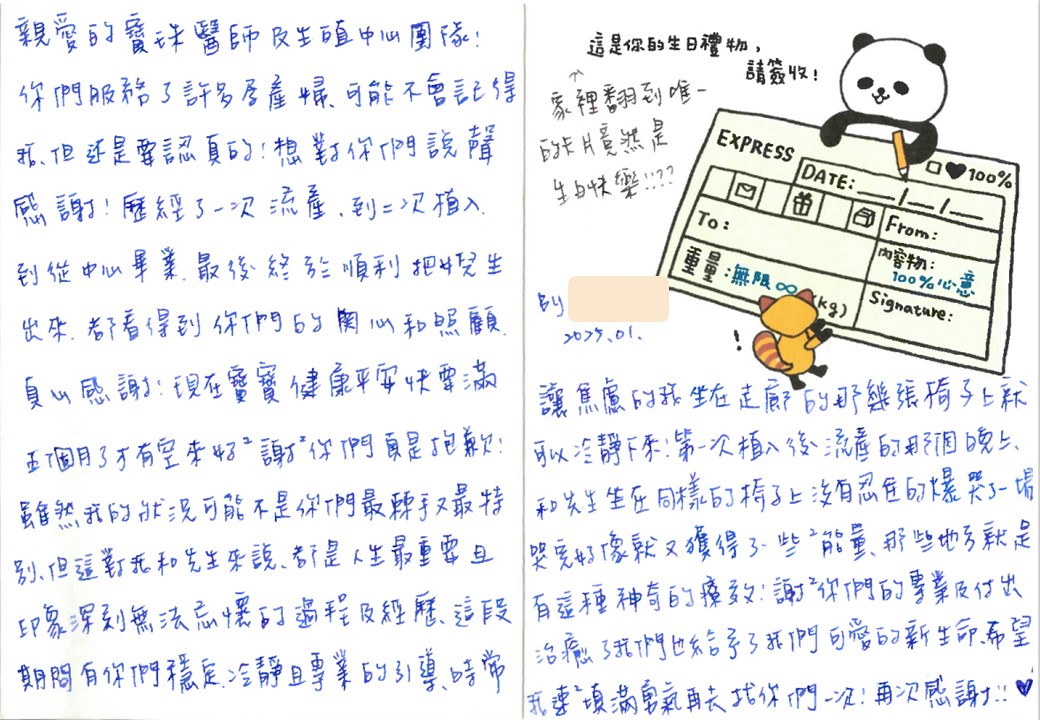 親愛的寶珠醫師及生殖中心團隊!
你們服務了許多孕產婦、可能不會記得
我、但還是要認真的!想對你們說聲
感謝!歷經了一次流產、到二次植入、
到從中心畢業、最後終於順利把女兒生
出來、都看得到你們的關心和照顧、
真心感謝!現在寶寶健康平安快要滿
五個月了才有空來好²謝²你們真是抱歉!
雖然我的狀況可能不是你們最棘手又最特
別、但這對我和先生來說、都是人生最重要且
印象深刻無法忘懷的過程及經歷、這段
期間有你們穩定、冷靜且專業的引導、時常
這是你的生日禮物,
請簽收!
↑
家裡翻到唯一
的卡片竟然是
生日快樂!!???
EXPRESS
100%
DATE: __/__/__
To:
From:
內容物:
100%心意
重量:無限∞(kg)
Signature:
!
2025.01.
讓焦慮的我坐在走廊的那幾張椅子上就
可以冷靜下來!第一次植入後流產的那個晚上、
和先生坐在同樣的椅子上沒有忍住的爆哭了一場
哭完好像就又獲得了一些²能量、那些地方就是
有這種神奇的療效!謝²你們的專業及付出
治癒了我們也給予了我們可愛的新生命、希望
我速²填滿勇氣再去找你們一次!再次感謝!!♥